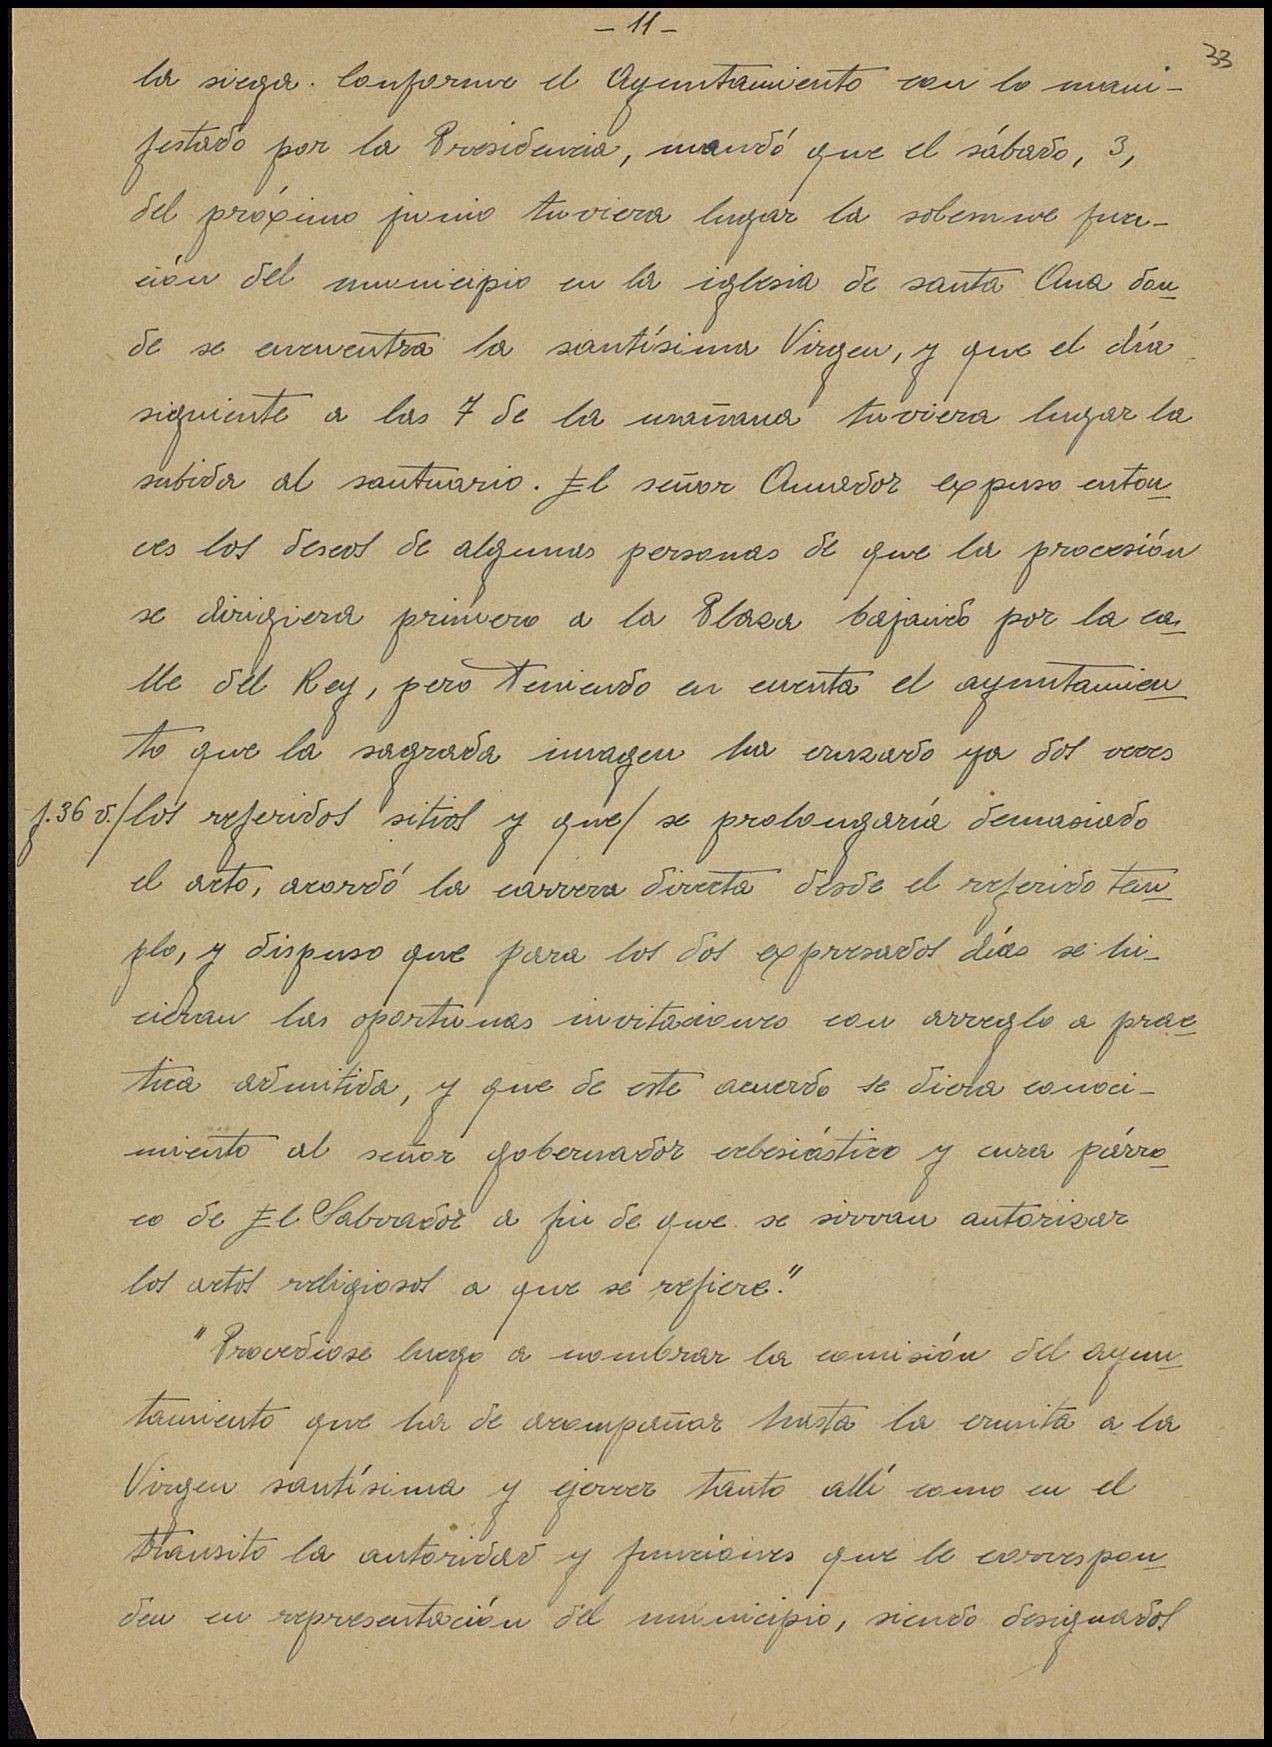 - 11 -
33
la siega. Conforme el Ayuntamiento con lo mani-
festado por la Presidencia, mandó que el sábado, 3,
del próximo junio tuviera lugar la solemne fun-
ción del municipio en la iglesia de santa Ana don-
de se encuentra la santísima Virgen, y que el día
siguiente a las 7 de la mañana tuviera lugar la
subida al santuario. El señor Amador expuso enton-
ces los deseos de algunas personas de que la procesión
se dirigiera primero a la Plaza bajando por la ca-
lle del Rey, pero teniendo en cuenta el ayuntamien-
to que la sagrada imagen ha cruzado ya dos veces
f. 36 v./ los referidos sitios y que/ se prolongaría demasiado
el acto, acordó la carrera directa desde el referido tem-
plo, y dispuso que para los dos expresados días se hi-
cieran las oportunas invitaciones con arreglo a prác-
tica admitida, y que de este acuerdo se diera conoci-
miento al señor gobernador eclesiástico y cura párro-
co de El Salvador a fin de que se sirvan autorizar
los actos religiosos a que se refiere."
"Procediose luego a nombrar la comisión del ayun-
tamiento que ha de acompañar hasta la ermita a la
Virgen santísima y ejercer tanto allí como en el
tránsito la autoridad y funciones que le correspon-
den en representación del municipio, siendo designados